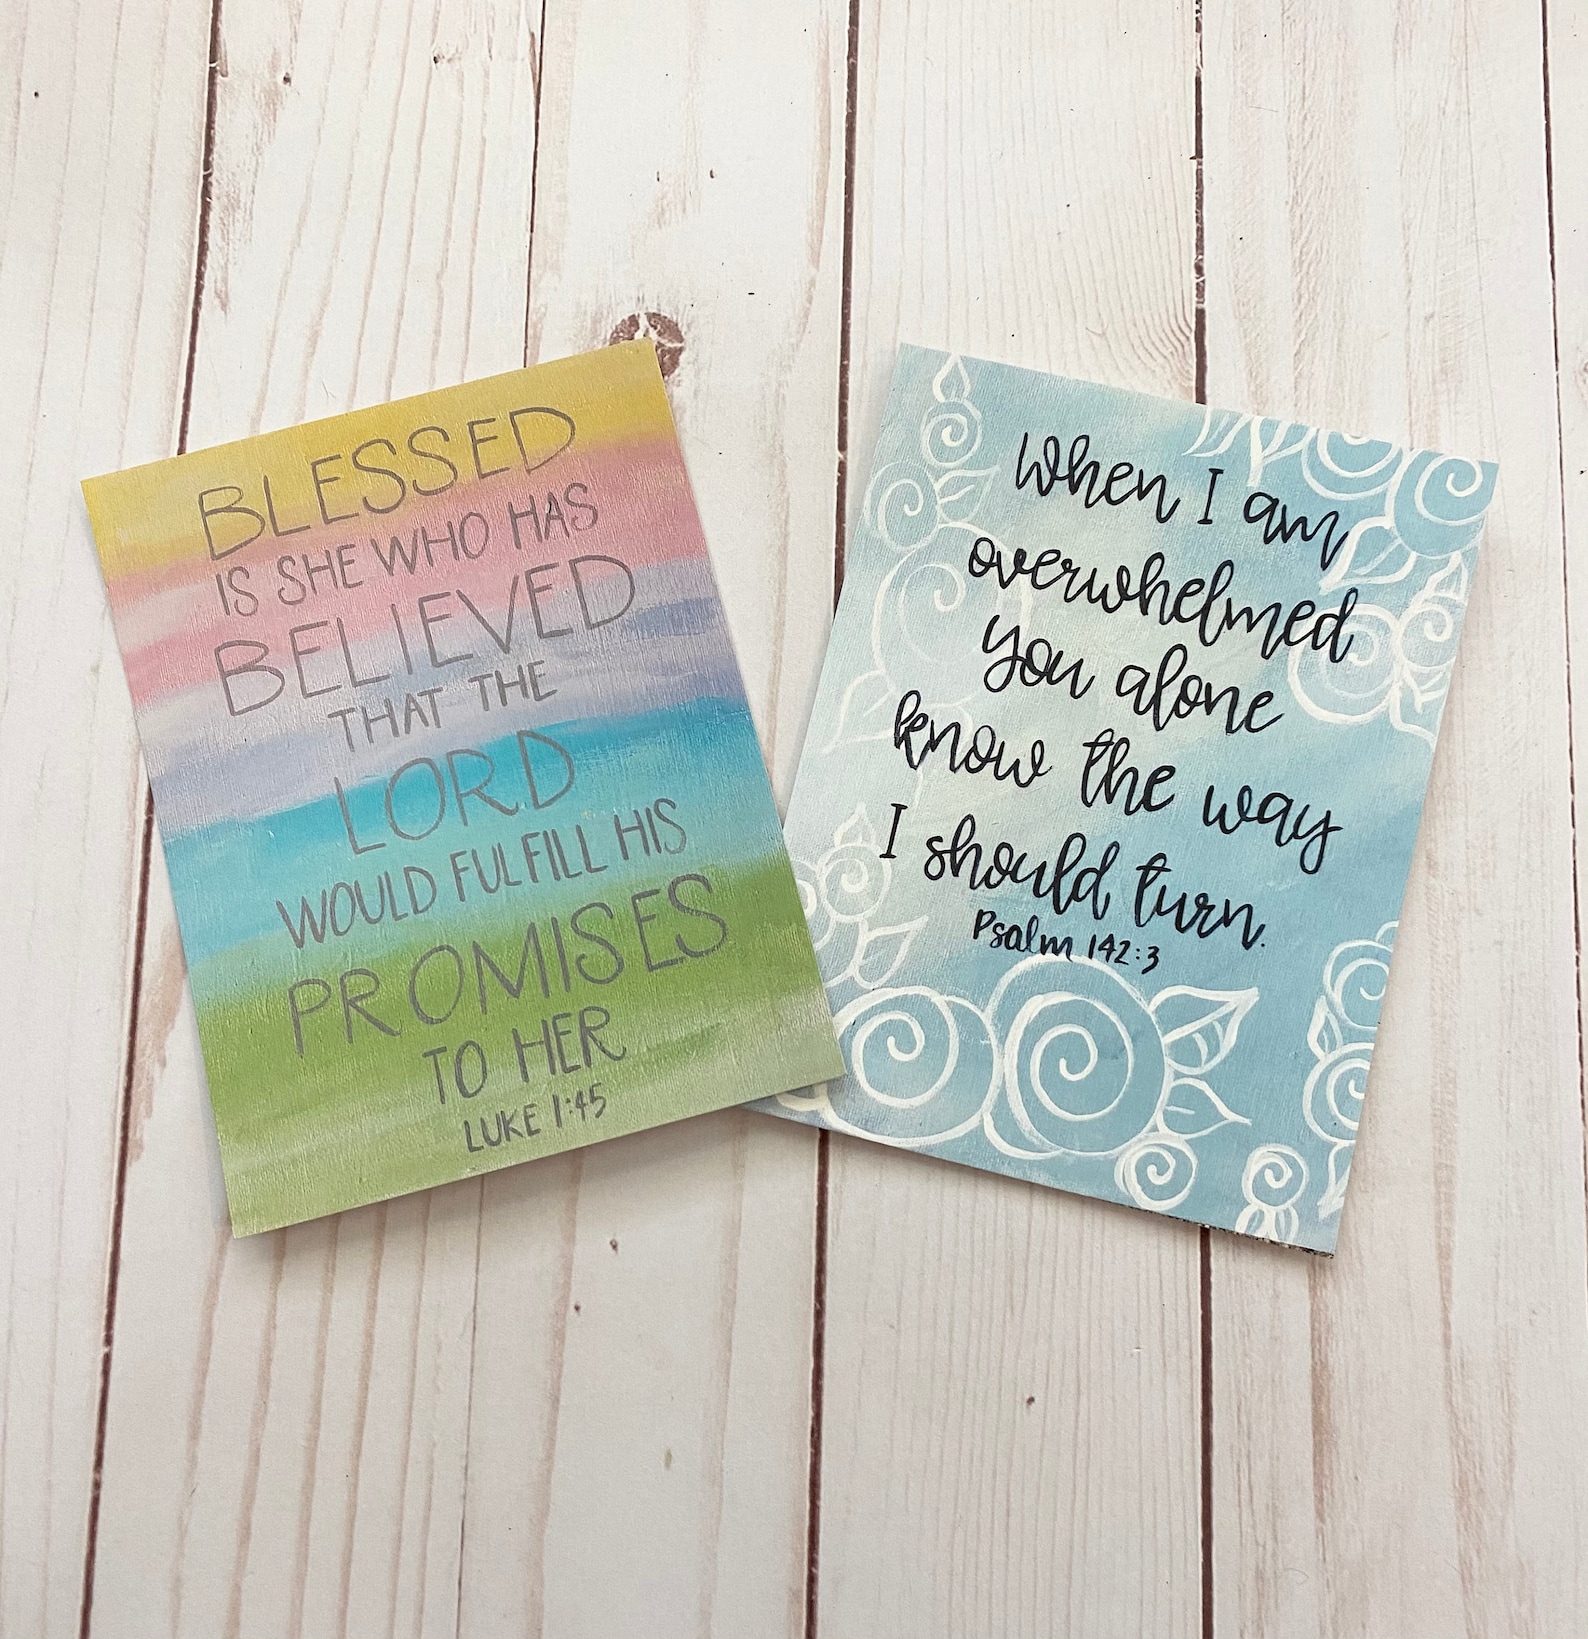 BLESSED
IS SHE WHO HAS
BELIEVED
THAT THE
LORD
WOULD FULFILL HIS
PROMISES
TO HER
LUKE 1:45
When I am
overwhelmed
you alone
know the way
I should turn.
Psalm 142:3